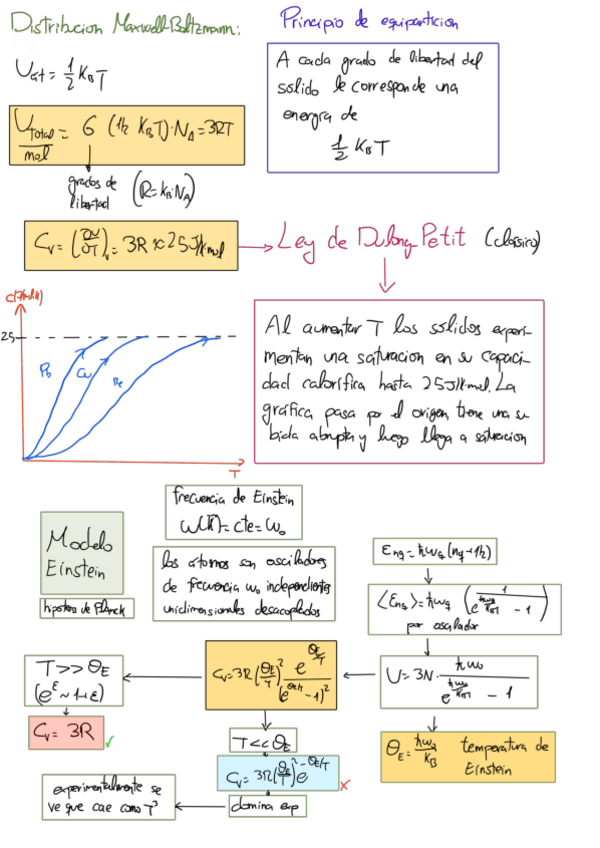 Distribucion Maxwell-Boltzmann:
Principio de equiparticion
U_at = 1/2 K_B T
A cada grado de libertad del
solido le corresponde una
energia de
1/2 K_B T
U_Total/mol = 6 (1/2 K_B T)·N_A = 3RT
grados de
libertad
(R = K_B·N_A)
C_v = (∂U/∂T)_v = 3R ≈ 25 J/Kmol
Ley de Dulong Petit (clásico)
25
Pb
Cu
Be
T
Al aumentar T los solidos experi-
mentan una saturacion en su capaci-
dad calorífica hasta 25 J/Kmol. La
gráfica pasa por el origen tiene una su
bida abrupta y luego llega a saturacion
Modelo
Einstein
hipotesis de Planck
frecuencia de Einstein
ω(k⃗) = cte = ω₀
los atomos son osciladores
de frecuencia ω₀ independientes
unidimensionales desacoplados
E_nq = ħω_q (n_q + 1/2)
<E_nq> = ħω_q (1/(e^(ħω_q/K_BT) - 1))
por oscilador
U = 3N · ħω₀/(e^(ħω₀/K_BT) - 1)
Θ_E = ħω₀/K_B temperatura de
Einstein
C_v = 3R (Θ_E/T)² e^(Θ_E/T)/(e^(Θ_E/T) - 1)²
T >> Θ_E
(e^ε ~ 1+ε)
C_v = 3R ✓
T << Θ_E
C_v = 3R (Θ_E/T)² e^(-Θ_E/T) ×
domina exp
experimentalmente se
ve que cae como T³